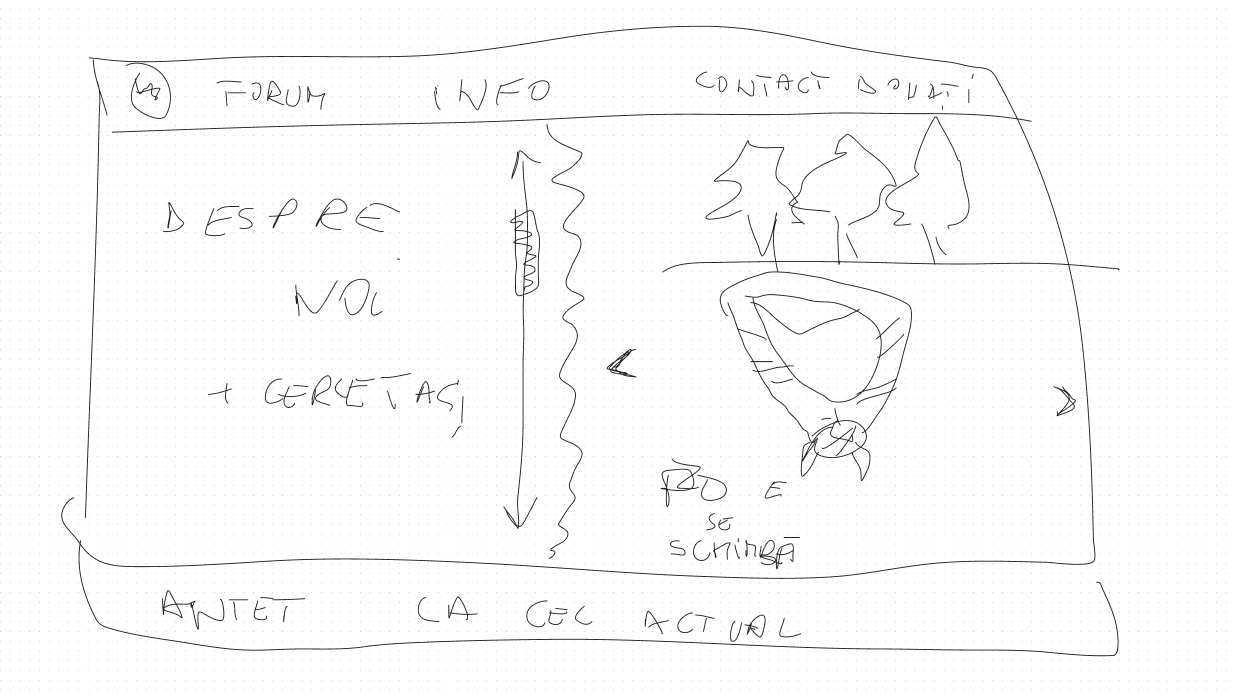 FORUM INFO CONTACT DONAȚI
DESPRE
NOI
+ CERCETAȘI
E
SE
SCHIMBĂ
ANTET LA CEL ACTUAL